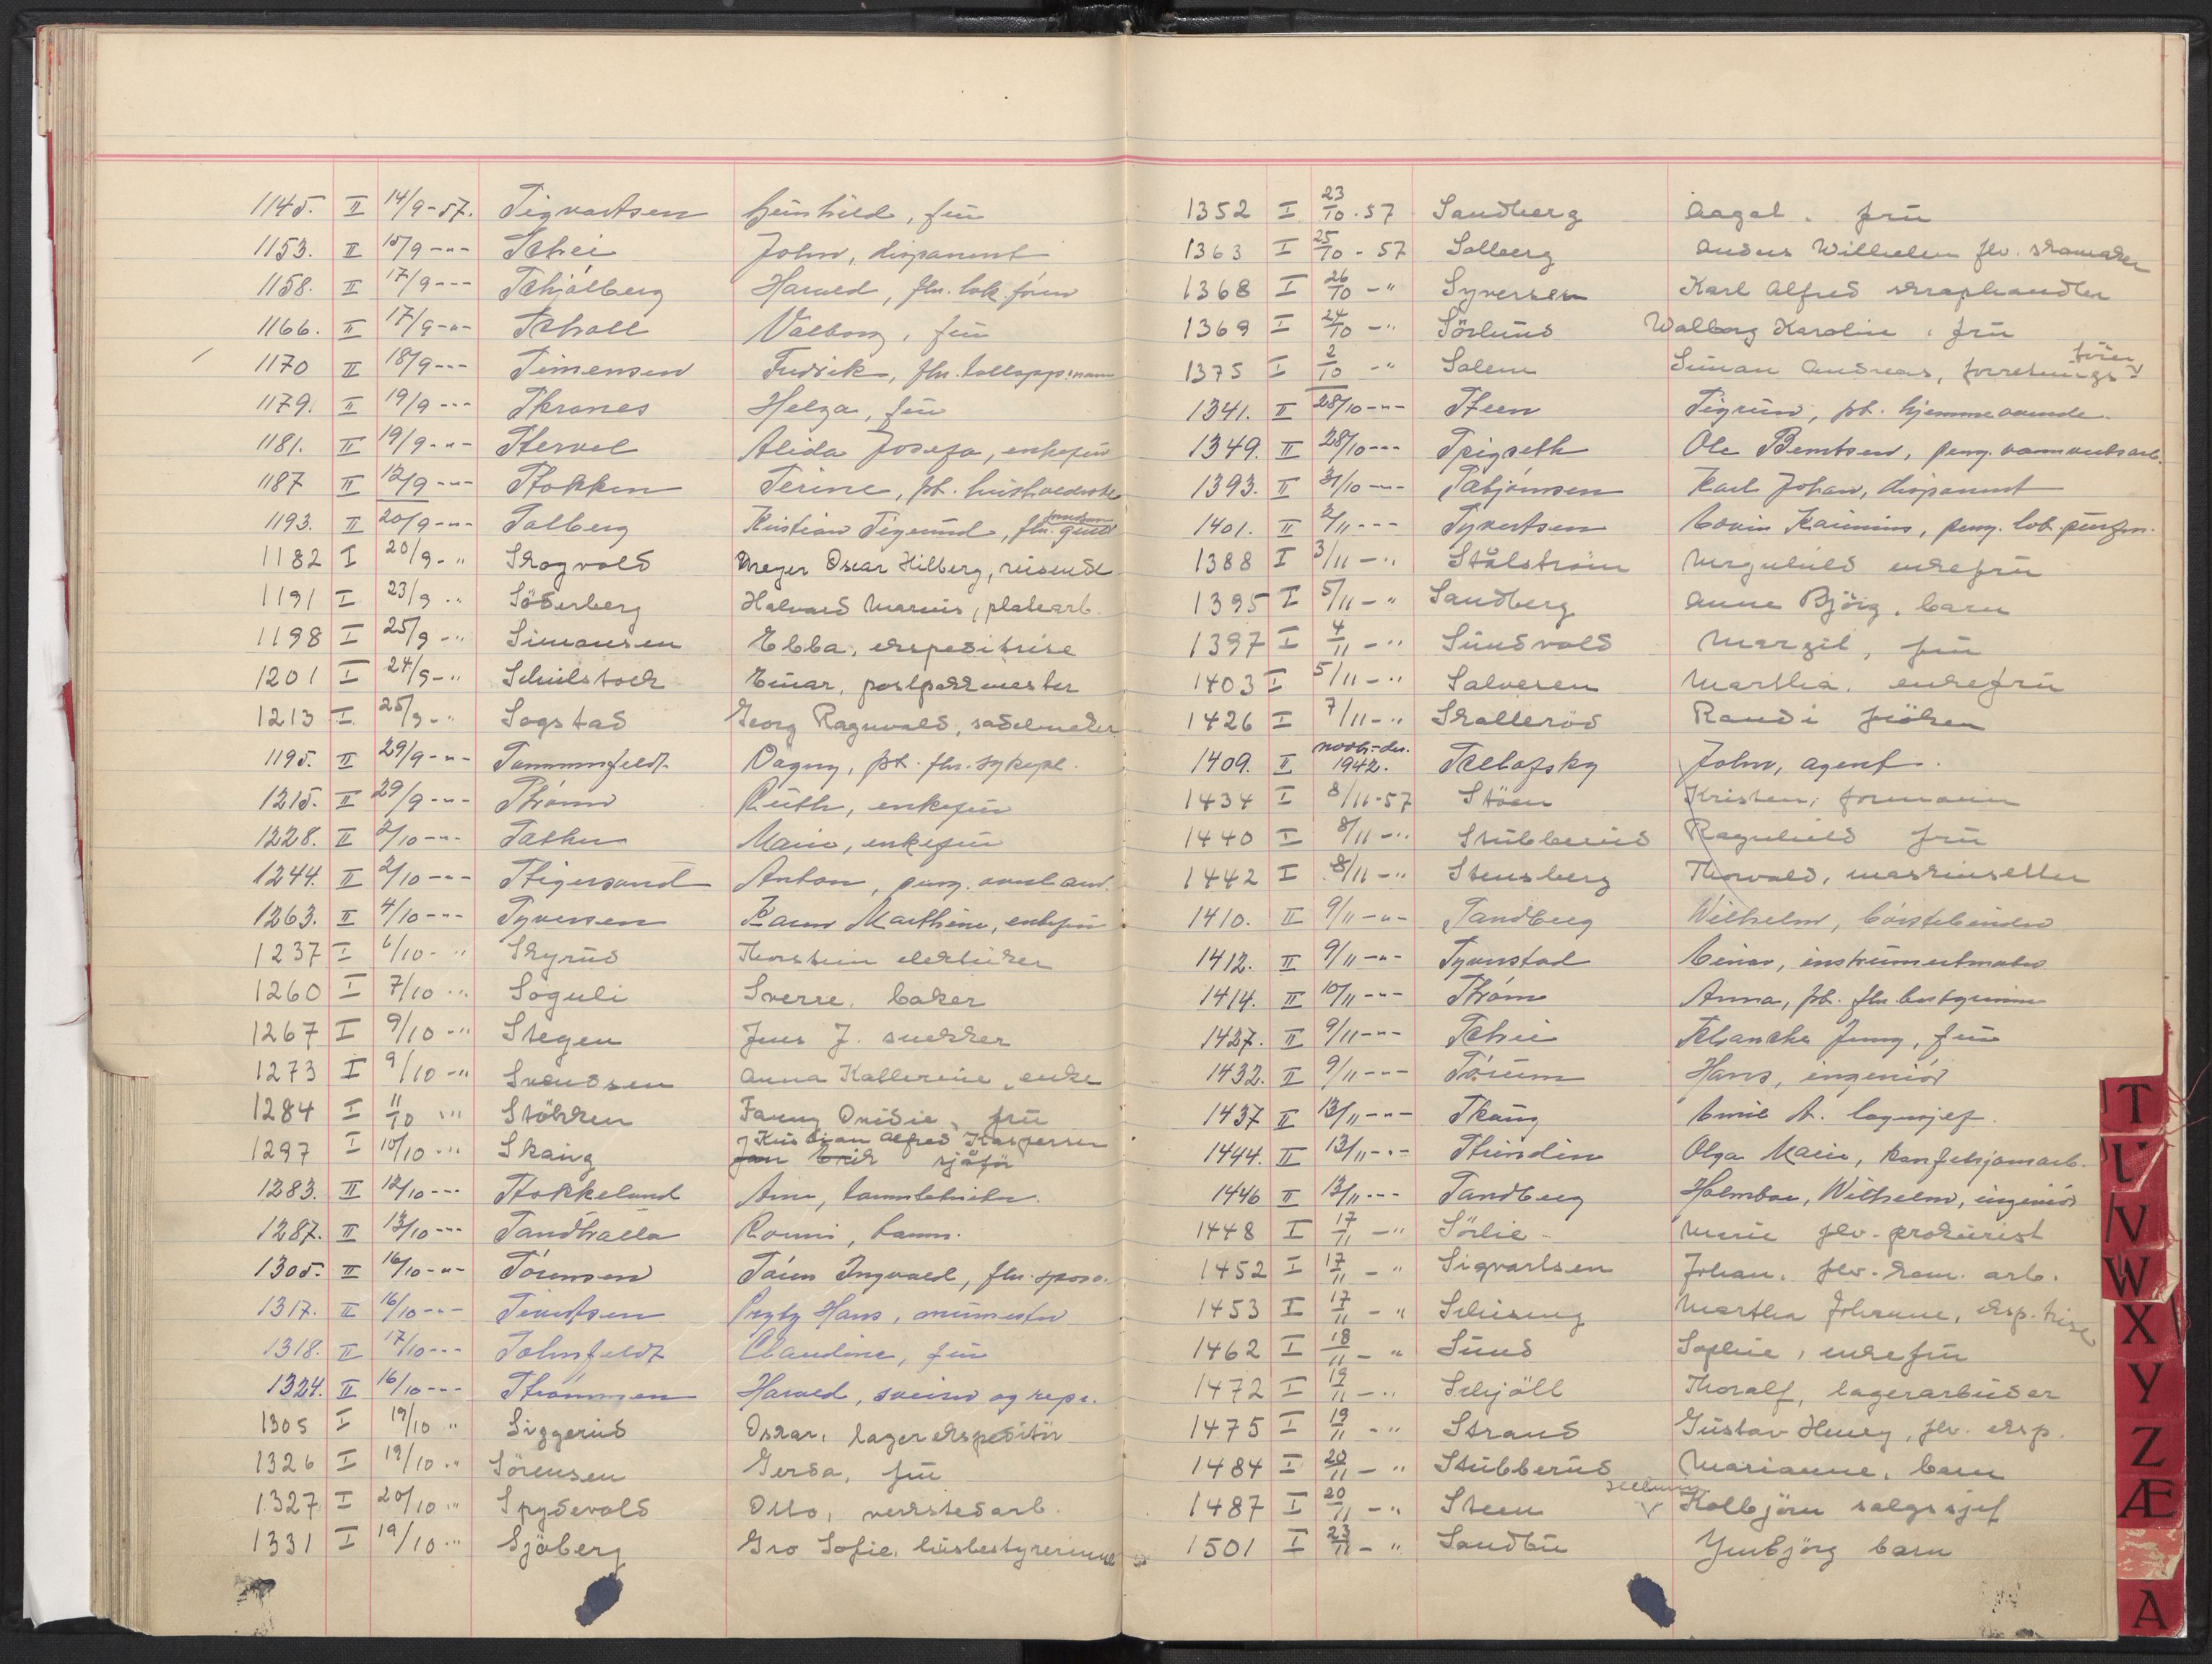 1145. II 14/9-57. Sigvartsen Gunhild, fru
1153. II 15/9 -"- Schei John, disponent
1158. II 17/9 --- Schjölberg Harald, fhv. lok.förer
1166. II 17/9 -"- Scholl Valborg, fru
1170 II 18/9 --- Simensen Fredrik, fhv. tollopps.mann
1179. II 19/9 --- Skrones Helga, fru
1181. II 19/9 -"- Stervel Alida Josefa, enkefru
1187 II 12/9 -"- Stokken Serine, pt. husholderske
1193. II 20/9 -"- Solberg Kristian Sigurd, fhv.
1182 I 20/9 - " Skogvold Dreyer Oscar Hilberg, reisende
1191 I 23/9 " Söderberg Halvard Marius, platearb.
1198 I 25/9 - " Simonsen Ebba, ekspeditrise
1201 I 24/9 - " Schulstock Einar, postpakkmester
1213 I 25/9 - " Sogstad Georg Ragnvald, sadelmaker
1195. II 29/9 -"- Sommerfeldt Dagny, pt. fhv. sykepl.
1215. II 29/9 -"- Ström Ruth, enkefru
1228. II 2/10 -"- Sather Marie, enkefru
1244. II 2/10 --- Stigersand Anton, pens.
1263. II 4/10 --- Syversen Karen Marthine, enkefru
1237 I 6/10 - " Skyrud Thorstein elektriker
1260 I 7/10 " Soguli Sverre, baker
1267 I 9/10 - " Stegen Jens J. snekker
1273 I 9/10 - " Svendsen Anna Katherine, enke
1284 I 11/10 " Stökken Fanny Ovidie, fru
1297 I 10/10 " Skaug Kristian Alfred Kaspersen
Jan Erik sjåför
1283. II 12/10 --- Stokkeland Arne,
1287. II 13/10 --- Sandbrælla Ronni, barn.
1305. II 16/10 -"- Sörensen Sören Ingvald, fhv.
1317. II 16/10 --- Sivertsen Preby Hans, murmester
1318. II 17/10 --- Sohnfeldt Claudine, fru
1324. II 16/10 --- Strömmen Harald, svein og repr.
1305 I 19/10 " Siggerud Oskar, lagerekspeditör
1326 I 19/10 " Sörensen Gerda, fru
1327 I 20/10 " Spydevold Otto, verkstedarb.
1331 I 19/10 " Sjöberg Gro Sofie, husbestyrerinne
1352 I 23/10 . 57 Sandberg Aagot, fru
1363 I 25/10 - 57 Solberg Anders Wilhelm flv. skomaker
1368 I 26/10 - " Syversen Karl Alfred skraphandler
1369 I 24/10 - " Sörlund Walborg Karoline, fru
1375 I 2/10 - " Salem Simon Andreas, forretnings-
förer
1341. II 28/10 -"- Steen Sigrun, pt. hjemmeværende.
1349. II 28/10 --- Spigseth Ole Berntsen, pens. vannverksarb.
1393. II 31/10 --- Sæbjörnsen Karl Johan, disponent
1401. II 2/11 --- Syvertsen
1388 I 3/11 - " Stålström enkefru
1395 I 5/11 - " Sandberg Anne Björg, barn
1397 I 4/11 - " Sundvold Margit, fru
1403 I 5/11 - " Salvesen Martha, enkefru
1426 I 7/11 - " Skalleröd Randi fröken
1409. II novb.-des. 1942. Sclofsky John, agent.
1434 I 8/11-57 Stöen Kristen, formann
1440 I 8/11 - " Stubberud Ragnhild fru
1442 I 8/11 - " Stensberg Thorvald, maskinsetter
1410. II 9/11 -"- Sandberg Wilhelm, börstebinder
1412. II 9/11 -"- Syverstad Einar, instrumentmaker
1414. II 10/11 --- Ström Anna, pt. fhv. bestyrerinne
1427. II 9/11 -"- Schei Blancke Jenny, fru
1432. II 9/11 --- Sörum Hans, ingeniör
1437 II 13/11 --- Skaug Emil A. lagersjef
1444. II 13/11 --- Strindin Olga Marie, konfeksjonsarb.
1446 II 13/11 --- Sandberg Holmboe, Wilhelm, ingeniör
1448 I 17/11 - " Sörlie Marie flv. prokurist
1452 I 17/11 - " Sigvartsen Johan, flv. kom. arb.
1453 I 17/11 - " Schising Martha Johanne, eksp. trise
1462 I 18/11 - " Sund Sophie, enkefru
1472 I 19/11 - " Schjöll Thoralf, lagerarbeider
1475 I 19/11 - " Strand Gustav Henry, flv. eksp.
1484 I 20/11 - " Stubberud Marianne, barn
1487 I 20/11 - " Steen Kolbjörn salgssjef
1501 I 23/11 - " Sandbu Ingbjörg barn
T
U
V
W
X
Y
Z
Æ
A